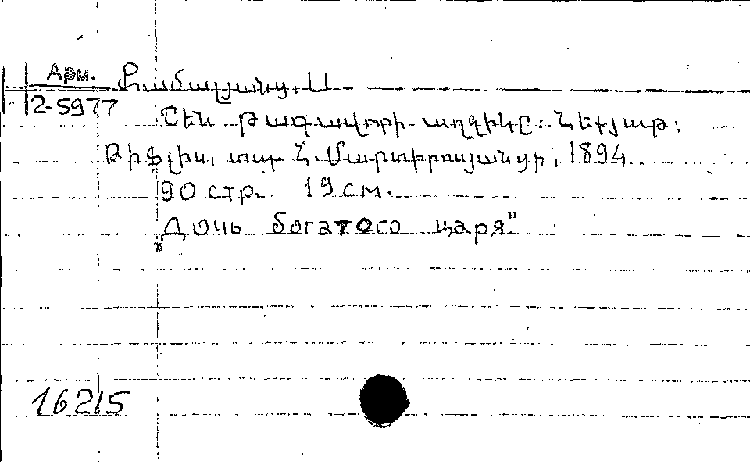 Арм. Քամալյանց. Ս
2-5977
Շէն թագաւորի աղջիկը: Հեքյաթ:
Թիֆլիս, տպ. Հ. Մարտիրոսյանցի, 1894
90 стр. 19 см.
„Дочь богатого царя"
16215